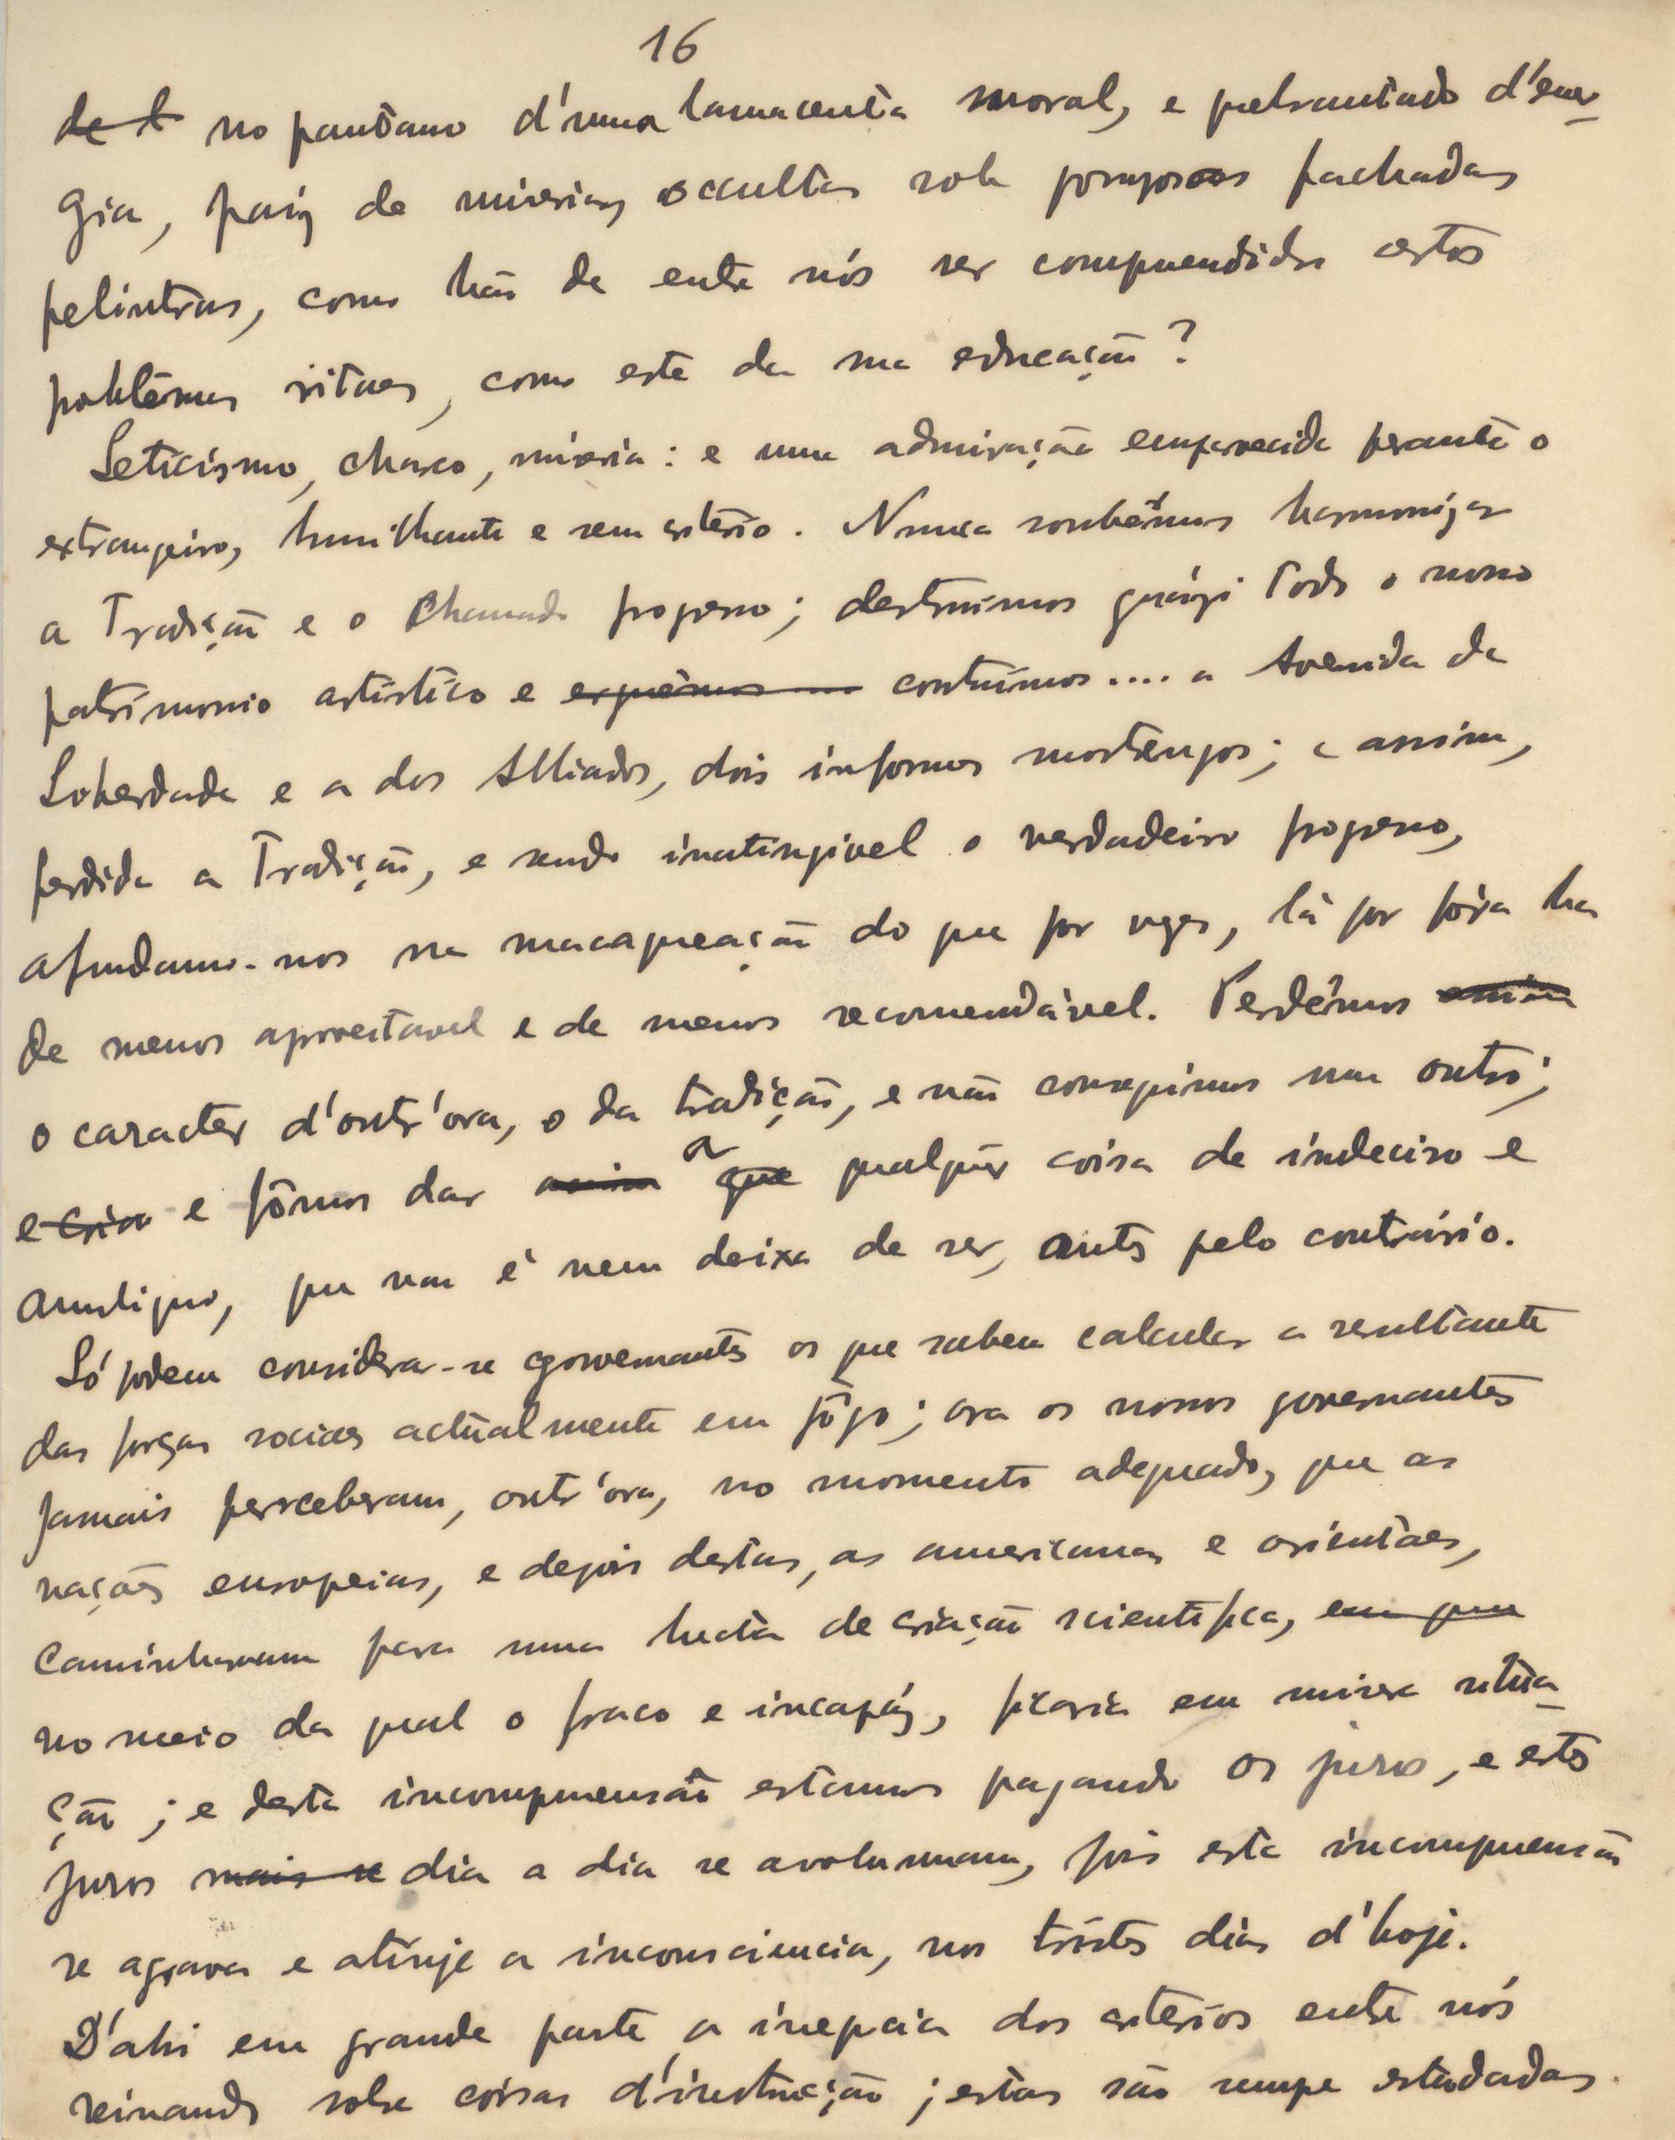 16
~~de t~~ no pantano d'uma lamacenta moral, e quebrantado d'ener-
gia, paiz de miserias occultas sob pomposas fachadas
pelintras, como hão de entre nós ser comprendidos estos
problêmas vitaes, como este da sua educação?
Seticismo, charco, miseria: e uma admiração emparvecida perante o
extrangeiro, humilhante e sem critério. Nunca soubémos harmonizar
a Tradição e o chamado progresso; destruimos quási todo o nosso
patrimonio artistico e ~~erguêmos~~ contruimos.... a Avenida da
Liberdade e a dos Alliados, dois informes mostrengos; e assim,
perdida a Tradição, e sendo inatingivel o verdadeiro progresso,
afundamo-nos na macaqueação do que por vezes, lá por fóra ha
de menos aproveitavel e de menos recomendável. Perdêmos ~~assim~~
o caracter d'outr'ora, o da tradição, e não conseguimos um outro;
~~e cria~~ e fômos dar ~~assim~~ a ~~que~~ qualquer coisa de indeciso e
ambiguo, que nem é nem deixa de ser, antes pelo contrário.
Só podem considerar-se governantes os que sabem calcular a resultante
das forças sociaes actualmente em jôgo; ora os nossos governantes
jamais perceberam, outr'ora, no momento adequado, que as
nações europeias, e depois destas, as americanas e orientaes,
caminhavam para uma lucta de criação scientifica, ~~em que~~
no meio da qual o fraco e incapáz, ficaria em misera situa-
ção; e desta incomprensão estamos pagando os juros, e estes
juros ~~mais se~~ dia a dia se avolumam, pois esta incomprensão
se agrava e atinje a inconsciencia, nos tristes dias d'hoje.
D'ahi em grande parte a inepcia dos critérios entre nós
reinando sobre coisas d'instrucção; estas são sempre estudadas